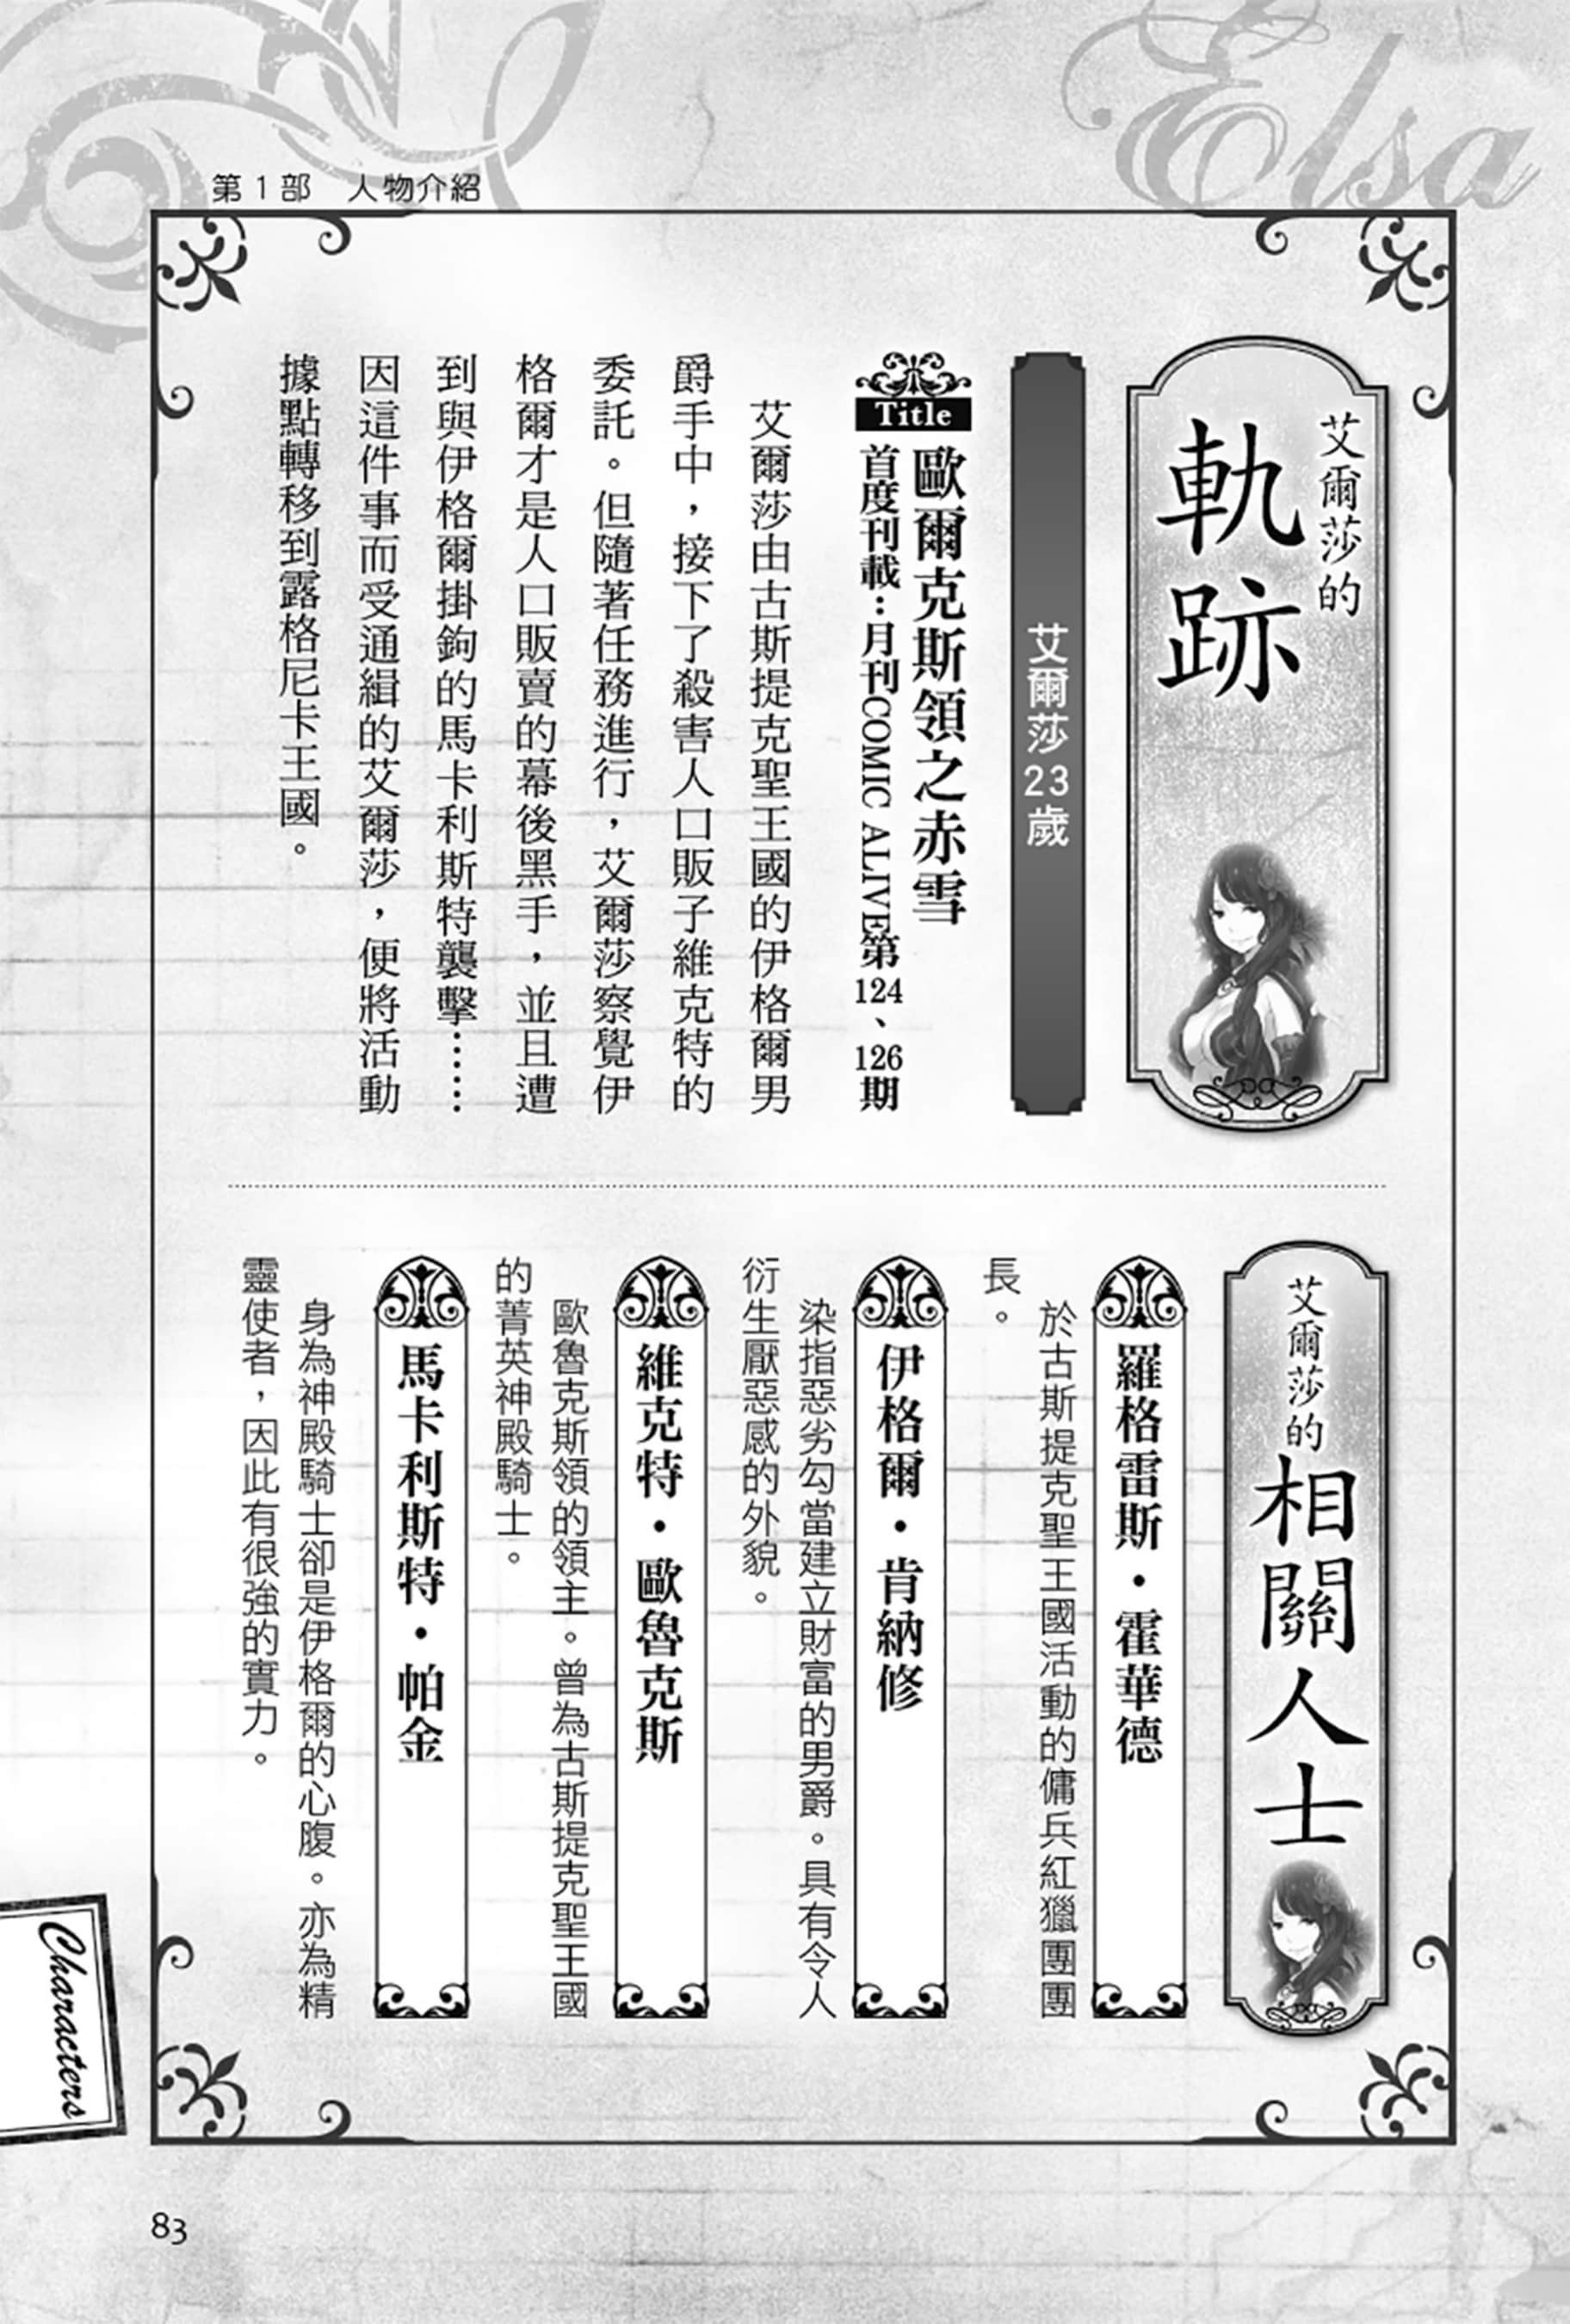 Elsa
第1部 人物介紹
艾爾莎的
軌跡
艾爾莎23歲
Title
歐爾克斯領之赤雪
首度刊載：月刊COMIC ALIVE第124、126期
艾爾莎由古斯提克聖王國的伊格爾男
爵手中，接下了殺害人口販子維克特的
委託。但隨著任務進行，艾爾莎察覺伊
格爾才是人口販賣的幕後黑手，並且遭
到與伊格爾掛鉤的馬卡利斯特襲擊……
因這件事而受通緝的艾爾莎，便將活動
據點轉移到露格尼卡王國。
艾爾莎的相關人士
羅格雷斯・霍華德
於古斯提克聖王國活動的傭兵紅獵團團
長。
伊格爾・肯納修
染指惡劣勾當建立財富的男爵。具有令人
衍生厭惡感的外貌。
維克特・歐魯克斯
歐魯克斯領的領主。曾為古斯提克聖王國
的菁英神殿騎士。
馬卡利斯特・帕金
身為神殿騎士卻是伊格爾的心腹。亦為精
靈使者，因此有很強的實力。
Characters
83